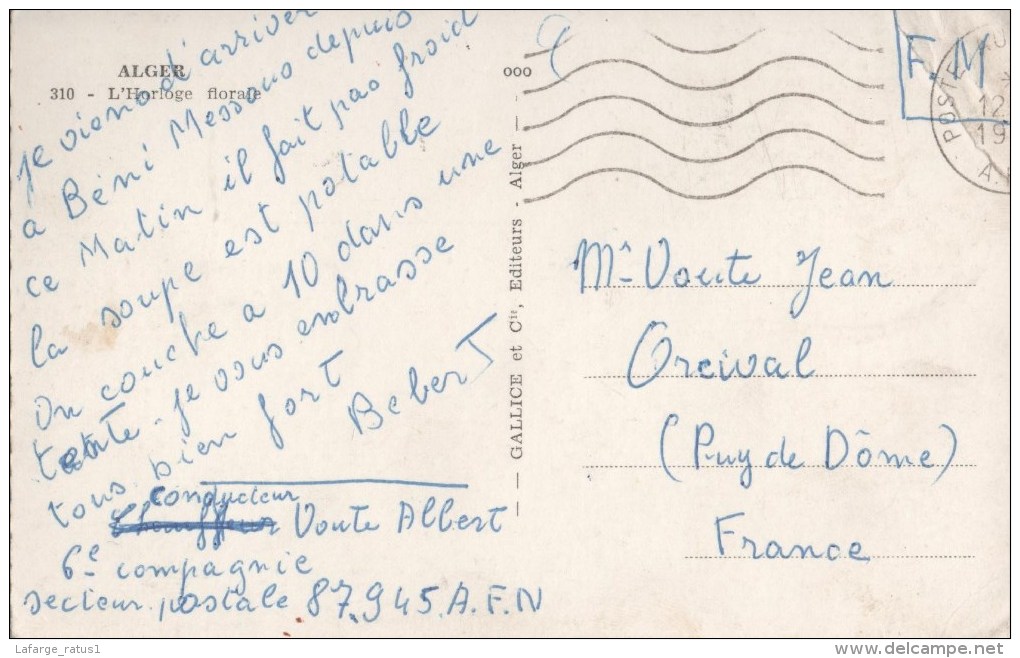 ALGER
310 - L'Horloge florale
Je viens d'arriver
a Béni Messous depuis
ce Matin il fait pas froid
la soupe est potable
On couche a 10 dans une
tente. Je vous embrasse
tous bien fort
Bebert
conducteur
Chauffeur Voute Albert
6e compagnie
secteur postale 87.945.A.F.N
— GALLICE et Cie, Editeurs - Alger —
000
F.M
POSTE
12
19
A.
Mr Voute Jean
Orcival
(Puy de Dôme)
France
Lafarge_ratus1
delcampe.net